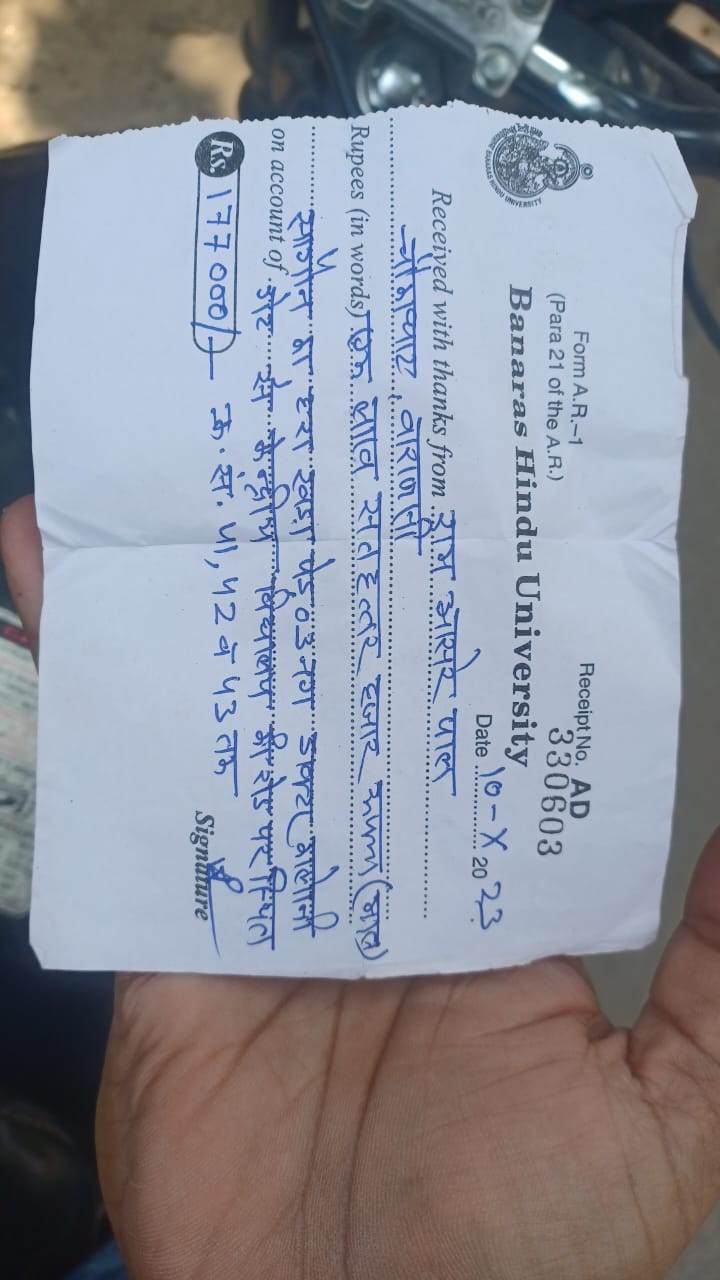 Form A.R.–1
(Para 21 of the A.R.)
Receipt No. AD
330603
BANARAS HINDU UNIVERSITY
Banaras Hindu University
Date 10-X 2023
Received with thanks from राम आसरे पाल
वाराणसी
Rupees (in words) एक लाख सतहत्तर हजार मात्र)
सागौन का हरा खड़ा पेड़ 03 नग
on account of केन्द्रीय विद्यालय की रोड पर स्थित
Rs. 177000/- क्र.सं. 41, 42 व 43 तक
Signature